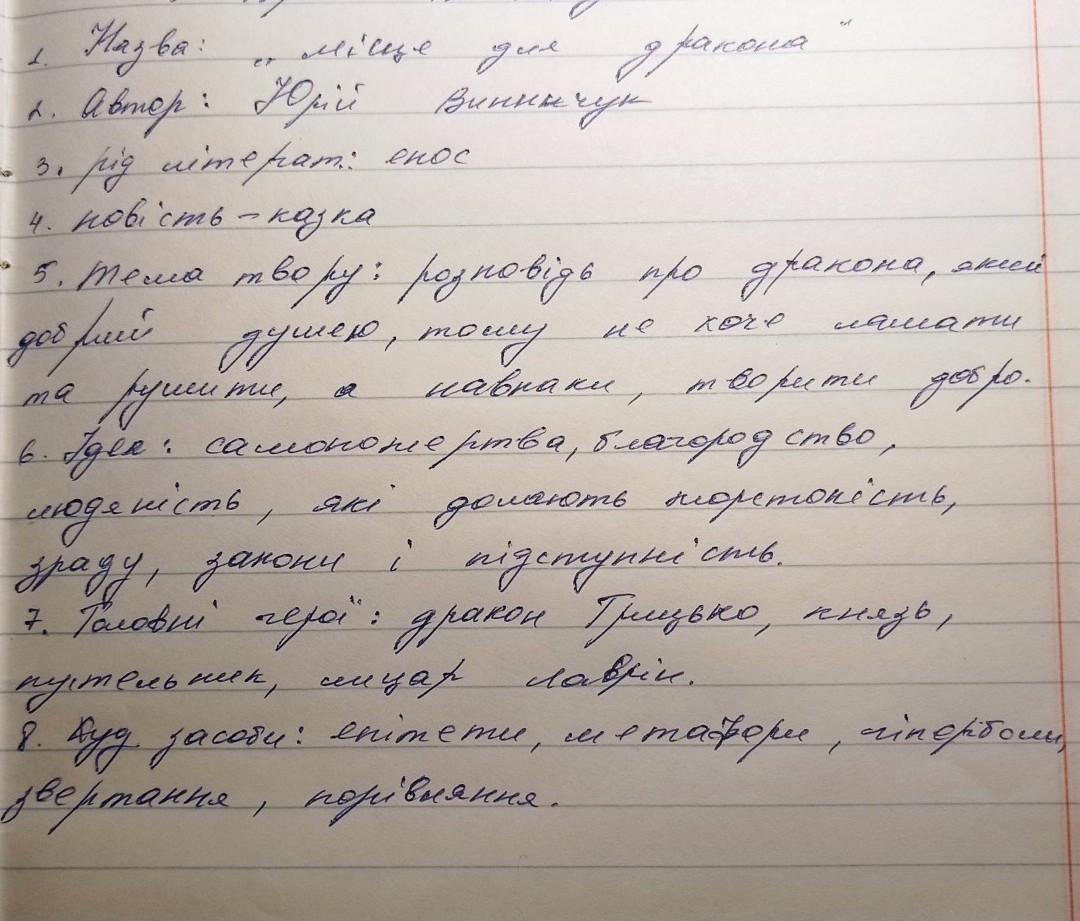 1. Назва: „Місце для дракона"
2. Автор: Юрій Винничук
3. рід літерат.: епос
4. повість - казка
5. Тема твору: розповідь про дракона, який
добрий душею, тому не хоче ламати
та рушити, а навпаки, творити добро.
6. Ідея: самопожертва, благородство,
людяність, які долають жорстокість,
зраду, закони і підступність.
7. Головні герої: дракон Грицько, князь,
пустельник, лицар Лаврін.
8. Худ. засоби: епітети, метафори, гіперболи,
звертання, порівняння.